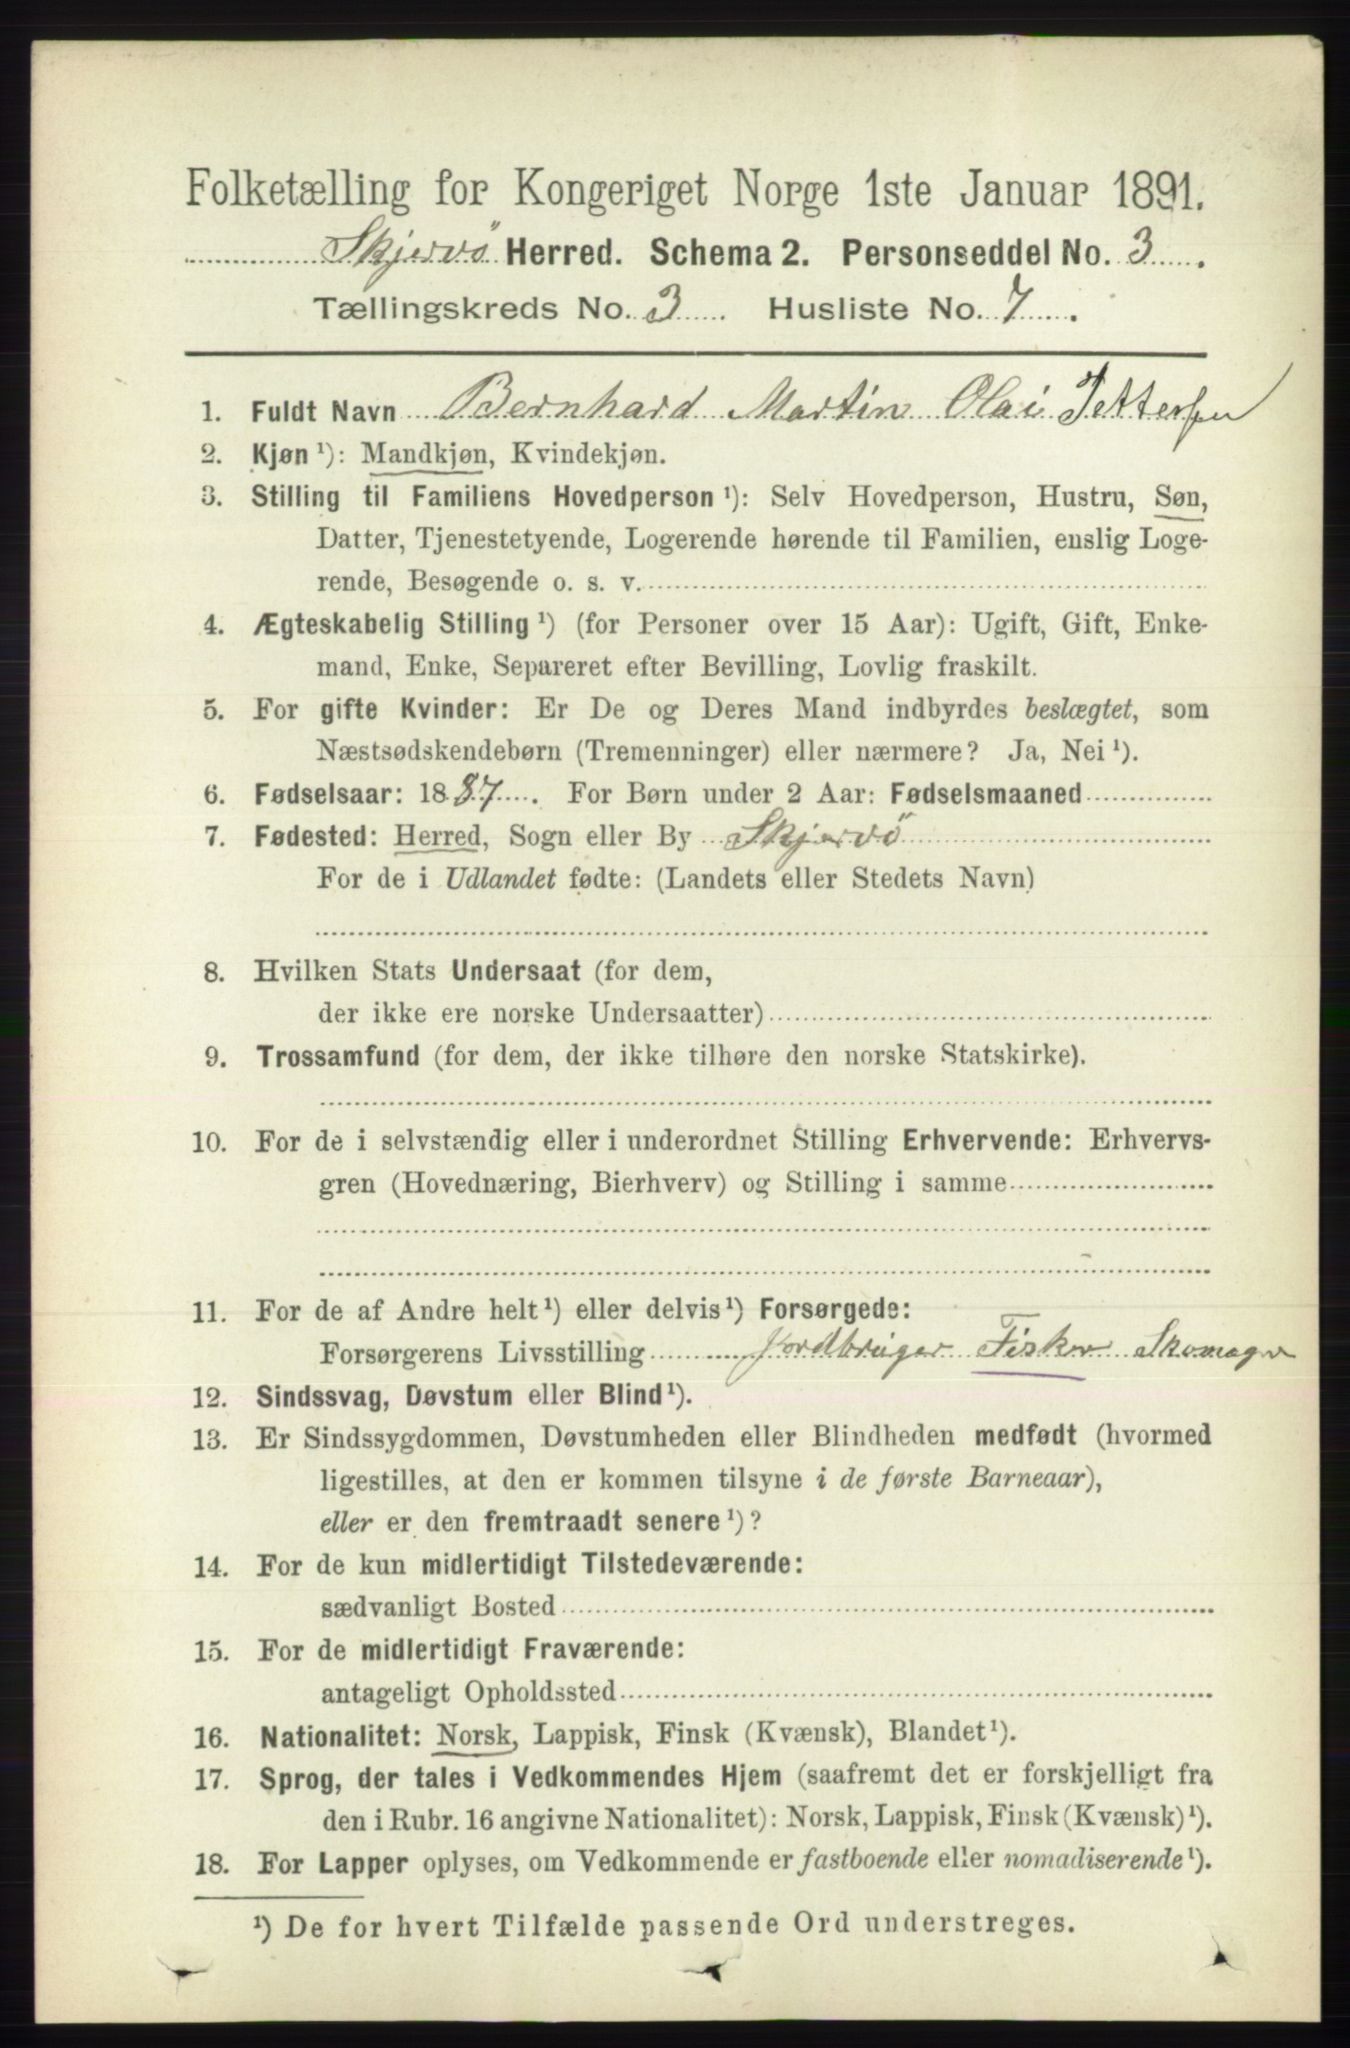 Folketælling for Kongeriget Norge 1ste Januar 1891.
Skjervö Herred. Schema 2. Personseddel No. 3.
Tællingskreds No. 3 Husliste No. 7.
1. Fuldt Navn Bernhard Martin Olai Pettersen
2. Kjøn ¹): Mandkjøn, Kvindekjøn.
3. Stilling til Familiens Hovedperson ¹): Selv Hovedperson, Hustru, Søn,
Datter, Tjenestetyende, Logerende hørende til Familien, enslig Loge-
rende, Besøgende o. s. v.
4. Ægteskabelig Stilling ¹) (for Personer over 15 Aar): Ugift, Gift, Enke-
mand, Enke, Separeret efter Bevilling, Lovlig fraskilt.
5. For gifte Kvinder: Er De og Deres Mand indbyrdes beslægtet, som
Næstsødskendebørn (Tremenninger) eller nærmere? Ja, Nei ¹).
6. Fødselsaar: 1887. For Børn under 2 Aar: Fødselsmaaned
7. Fødested: Herred, Sogn eller By Skjervö
For de i Udlandet fødte: (Landets eller Stedets Navn)
8. Hvilken Stats Undersaat (for dem,
der ikke ere norske Undersaatter)
9. Trossamfund (for dem, der ikke tilhøre den norske Statskirke).
10. For de i selvstændig eller i underordnet Stilling Erhvervende: Erhvervs-
gren (Hovednæring, Bierhverv) og Stilling i samme
11. For de af Andre helt ¹) eller delvis ¹) Forsørgede:
Forsørgerens Livsstilling Jordbruger Fisker Skomager
12. Sindssvag, Døvstum eller Blind ¹).
13. Er Sindssygdommen, Døvstumheden eller Blindheden medfødt (hvormed
ligestilles, at den er kommen tilsyne i de første Barneaar),
eller er den fremtraadt senere ¹)?
14. For de kun midlertidigt Tilstedeværende:
sædvanligt Bosted
15. For de midlertidigt Fraværende:
antageligt Opholdssted
16. Nationalitet: Norsk, Lappisk, Finsk (Kvænsk), Blandet ¹).
17. Sprog, der tales i Vedkommendes Hjem (saafremt det er forskjelligt fra
den i Rubr. 16 angivne Nationalitet): Norsk, Lappisk, Finsk (Kvænsk) ¹).
18. For Lapper oplyses, om Vedkommende er fastboende eller nomadiserende ¹).
¹) De for hvert Tilfælde passende Ord understreges.